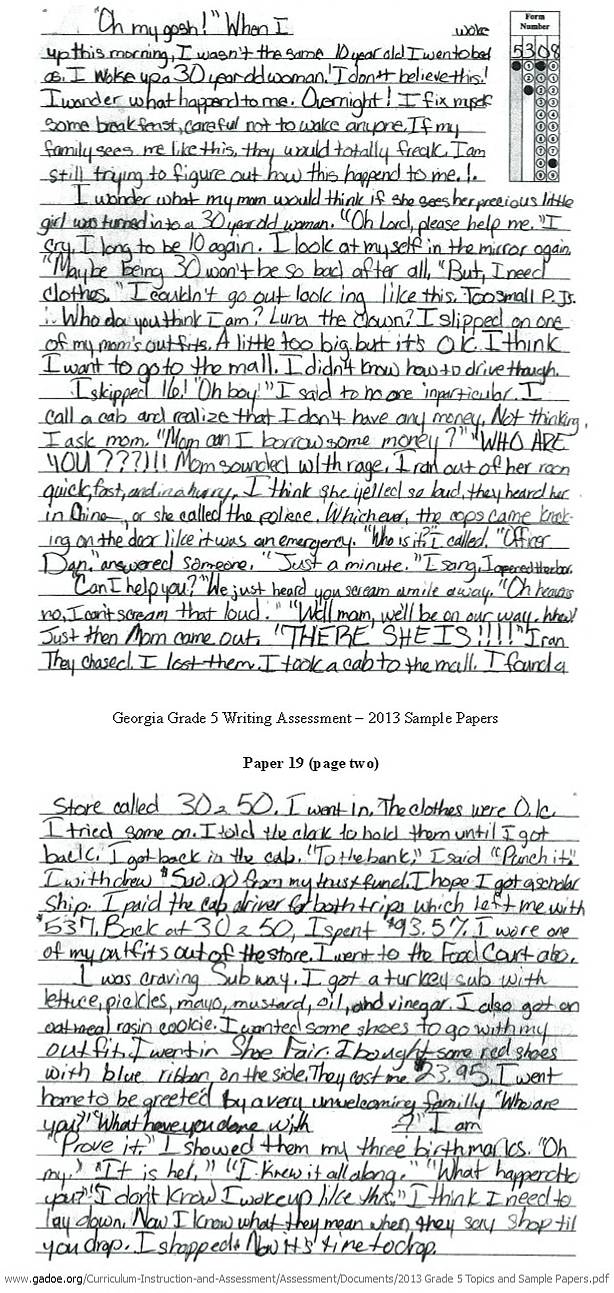 "Oh my gosh!" When I woke
Form
Number
5308
up this morning, I wasn't the same 10 year old I went to bed
as. I woke up a 30 year old woman! I don't believe this!
I wonder what happend to me. Overnight! I fix myself
some breakfeast, careful not to wake anyone. If my
family sees me like this, they would totally freak. I am
still trying to figure out how this happend to me.!.
I wonder what my mom would think if she sees her precious little
girl was turned in to a 30 year old woman. "Oh Lord, please help me." I
cry. I long to be 10 again. I look at my self in the mirror again.
"Maybe being 30 won't be so bad after all, "But, I need
clothes." I couldn't go out look ing like this. Too small P.Js.
Who do you think I am? Luna the clown? I slipped on one
of my mom's outfits. A little too big but it's O.K. I think
I want to go to the mall. I didn't know how to drive though.
I skipped 16! "Oh boy!" I said to no one inparticular. I
call a cab and realize that I don't have any money. Not thinking,
I ask mom. "Mom can I borrow some money?" "WHO ARE
YOU???!!! Mom sounded with rage. I ran out of her room
quick, fast, and in a hurry. I think she yelled so loud, they heard her
in China, or she called the poliece. Whichever, the cops came knock-
ing on the door like it was an emergency. "Who is it?" I called. "Officer
Dan." answered someone. "Just a minute." I sang. I opened the door.
"Can I help you?" "We just heard you scream a mile away. "Oh heavens
no, I can't scream that loud." "Well mam, we'll be on our way.
Just then Mom came out. "THERE SHE IS!!!!" I ran
They chased. I lost them. I took a cab to the mall. I found a
Georgia Grade 5 Writing Assessment – 2013 Sample Papers
Paper 19 (page two)
Store called 30 2 50. I went in. The clothes were O.k.
I tried some on. I told the clerk to hold them until I got
back. I got back in the cab. "To the bank," I said "Punch it."
I withdrew from my trust fund. I hope I got a scholar
ship. I paid the cab driver for both trips which left me with
$537. Back at 30 2 50, I spent $93.57. I wore one
of my outfits out of the store. I went to the Food Court also.
I was craving Subway. I got a turkey sub with
lettuce, pickles, mayo, mustard, oil, and vinegar. I also got an
oatmeal rasin cookie. I wanted some shoes to go with my
outfit. I went in Shoe Fair. I bought some red shoes
with blue ribbon on the side. They cost me $23.95. I went
home to be greeted by a very unwelcoming familly "Who are
you?" "What have you done with ?" I am
"Prove it." I showed them my three birthmarks. "Oh
my." "It is her," "I knew it all along." "What happend to
you?" "I don't know I woke up like this." I think I need to
lay down. Now I know what they mean when they say shop til
you drop. I shopped. Now it's time to drop.
www.gadoe.org/Curriculum-Instruction-and-Assessment/Assessment/Documents/2013 Grade 5 Topics and Sample Papers.pdf